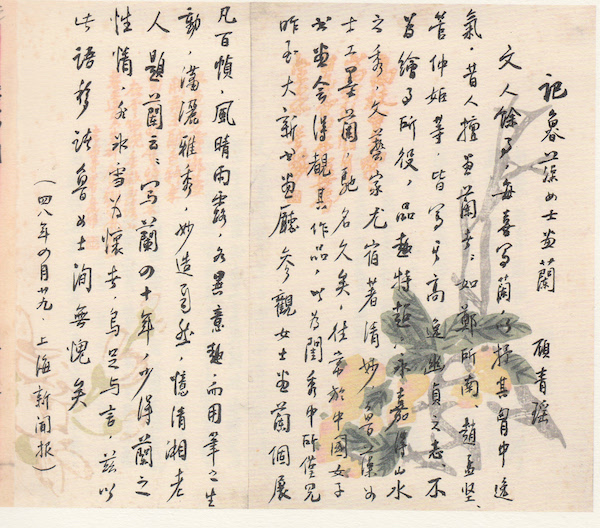 記魯女士畫蘭
顧青瑤
文人餘事,每喜寫蘭,以抒其胸中逸
氣,昔人擅畫蘭者,如鄭所南、趙孟堅、
管仲姬等,皆寫其高逸幽貞之志,不
為繪事所役,品趣特超,永嘉得山水
之秀,文藝家尤宿著清妙,魯女
士工墨蘭,馳名久矣,往常於中國女子
書畫會得觀其作品,以為閨秀中所僅見
昨至大新書畫廳,參觀女士畫蘭個展
凡百幀,風晴雨露,各異意趣,而用筆之生
動,瀟灑雅秀,妙造自然,憶清湘老
人題蘭云:寫蘭四十年,少得蘭之
性情,非冰雪為懷者,烏足與言,茲以
此語移諸魯女士洵無愧矣
(四八年四月廿九,上海新聞報)